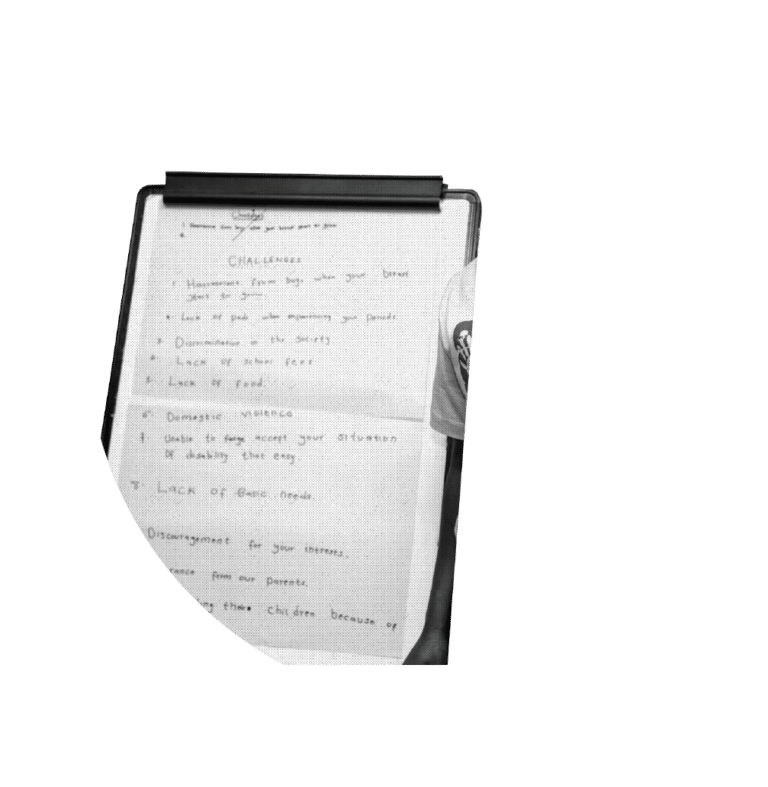 Challenges
1. Harrasment from boys when your breast start to grow
2.
CHALLENGES
1. Harrasment from boys when your breast
start to grow
2. Lack of pads when experiencing your periods
3. Discrimination in the society
4. Lack of school fees
5. Lack of food.
6. Domestic violence
7. Unable to accept your situation
of disability that easy
8. Lack of Basic needs.
Discouragement for your interests.
from our parents.
children because of